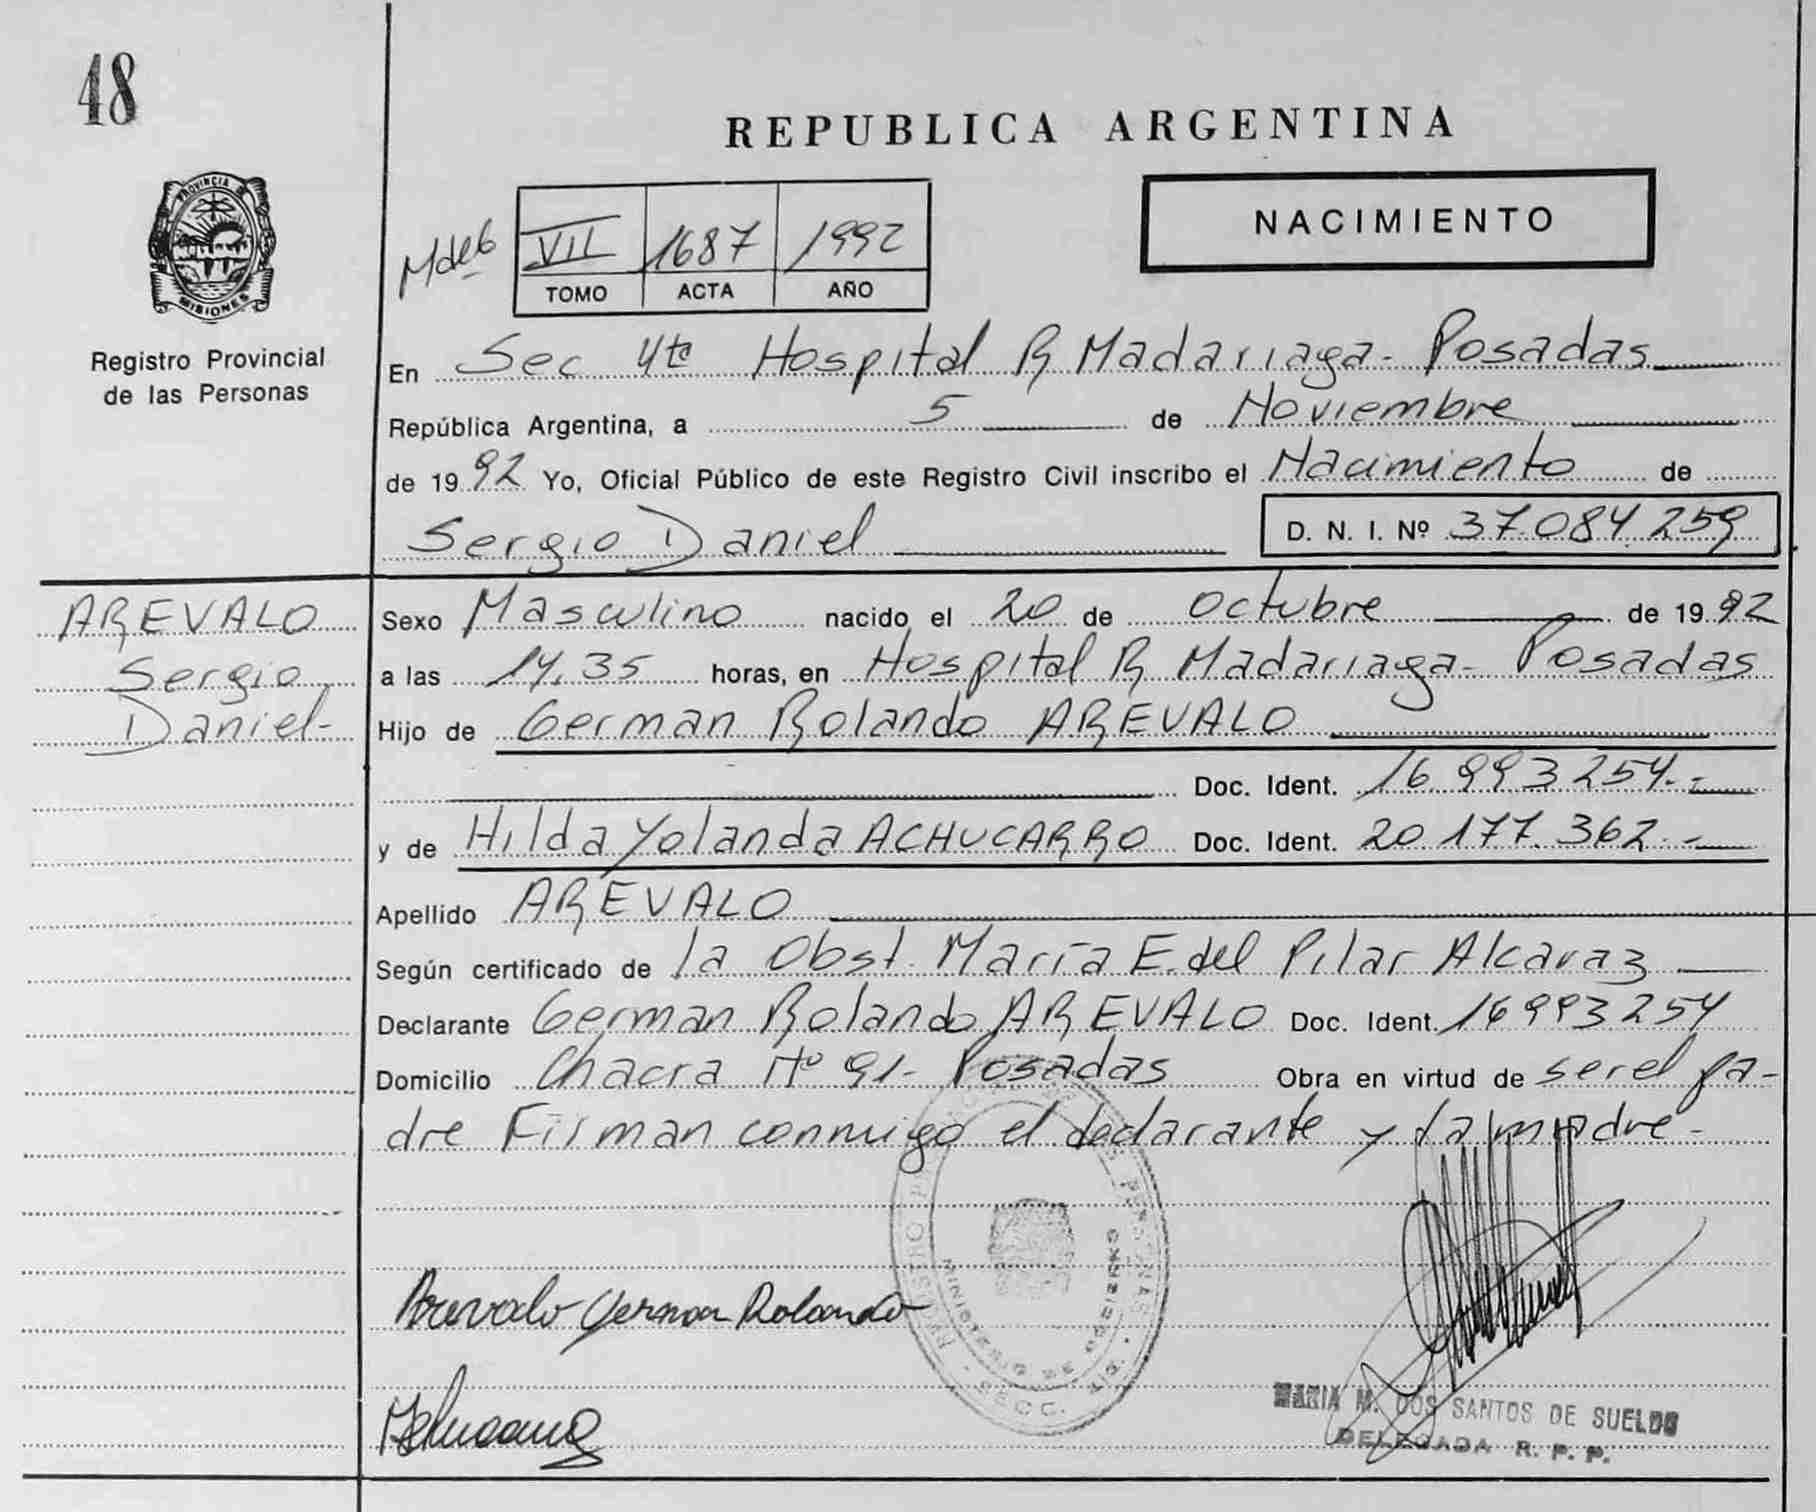 48
REPUBLICA ARGENTINA
NACIMIENTO
PROVINCIA DE
MISIONES
Registro Provincial
de las Personas
VII 1687 1992
TOMO ACTA AÑO
En Sec 4ta Hospital R Madariaga - Posadas
República Argentina, a 5 de Noviembre
de 1992 Yo, Oficial Público de este Registro Civil inscribo el Nacimiento de
Sergio Daniel D. N. I. Nº 37.084.259
AREVALO
Sergio
Daniel-
Sexo Masculino nacido el 20 de Octubre de 1992
a las 14.35 horas, en Hospital R Madariaga - Posadas
Hijo de German Rolando AREVALO
Doc. Ident. 16.993.254.-
y de Hilda Yolanda ACHUCARRO Doc. Ident. 20.177.362.-
Apellido AREVALO
Según certificado de la Obst. María E. del Pilar Alcaraz
Declarante German Rolando AREVALO Doc. Ident. 16993254
Domicilio Chacra Nº 91- Posadas Obra en virtud de ser el pa-
dre Firman conmigo el declarante y la madre-
Arevalo German Rolando
MINISTERIO DE GOBIERNO
MARIA M. DOS SANTOS DE SUELDO
DELEGADA R. P. P.